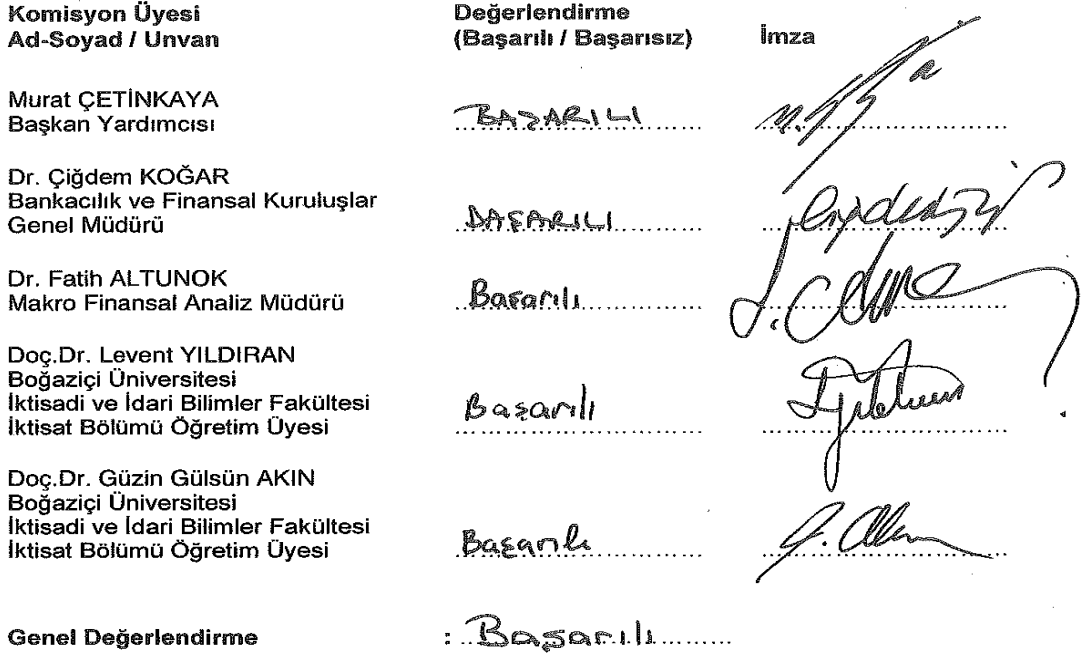 Komisyon Üyesi Değerlendirme
Ad-Soyad / Unvan (Başarılı / Başarısız) İmza
Murat ÇETİNKAYA
Başkan Yardımcısı BAŞARILI
Dr. Çiğdem KOĞAR
Bankacılık ve Finansal Kuruluşlar
Genel Müdürü BAŞARILI
Dr. Fatih ALTUNOK
Makro Finansal Analiz Müdürü Başarılı
Doç.Dr. Levent YILDIRAN
Boğaziçi Üniversitesi
İktisadi ve İdari Bilimler Fakültesi Başarılı
İktisat Bölümü Öğretim Üyesi
Doç.Dr. Güzin Gülsün AKIN
Boğaziçi Üniversitesi
İktisadi ve İdari Bilimler Fakültesi
İktisat Bölümü Öğretim Üyesi Başarılı
Genel Değerlendirme : Başarılı